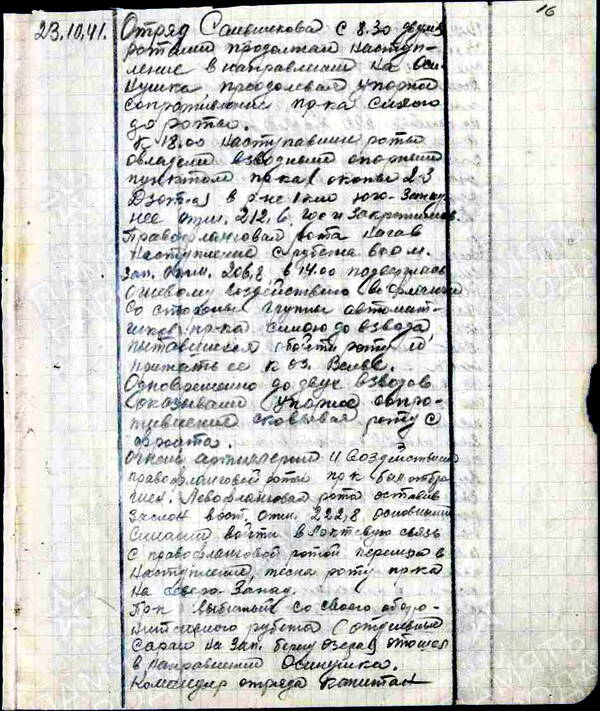 16
23.10.41. Отряд Сальникова с 8.30 двумя
ротами продолжал наступ-
ление в направлении на Оси-
нушка, преодолевая упорное
сопротивление пр-ка силою
до роты.
К 18.00 наступавшие роты
овладели взводным опорным
пунктом пр-ка (окопы 2-3
Дзотов) в р-не 1 км юго-запад-
нее отм. 212,6, где и закрепились.
Правофланговая рота начав
наступление с рубежа
зап. отм. 206,8 в 14.00 подверглась
огневому воздействию
со стороны группы автомат-
чиков пр-ка силою до взвода,
пытавшиеся обойти роту и
прижать ее к оз. Велье.
Одновременно до двух взводов
оказывали упорное сопро-
тивление сковывая роту с
фронта.
Огнем артиллерии и воздействием
правофланговой роты пр-к был отбро-
шен. Левофланговая рота оставив
заслон вост. отм. 222,8 основными
силами войти в локтевую связь
с правофланговой ротой перешла в
наступление, тесня роту пр-ка
на северо-запад.
Пр-к выбитый со своего оборо-
нительного рубежа (отдельные
сараи на зап. берегу озера) отошел
в направлении Осинушка.
Командир отряда капитан